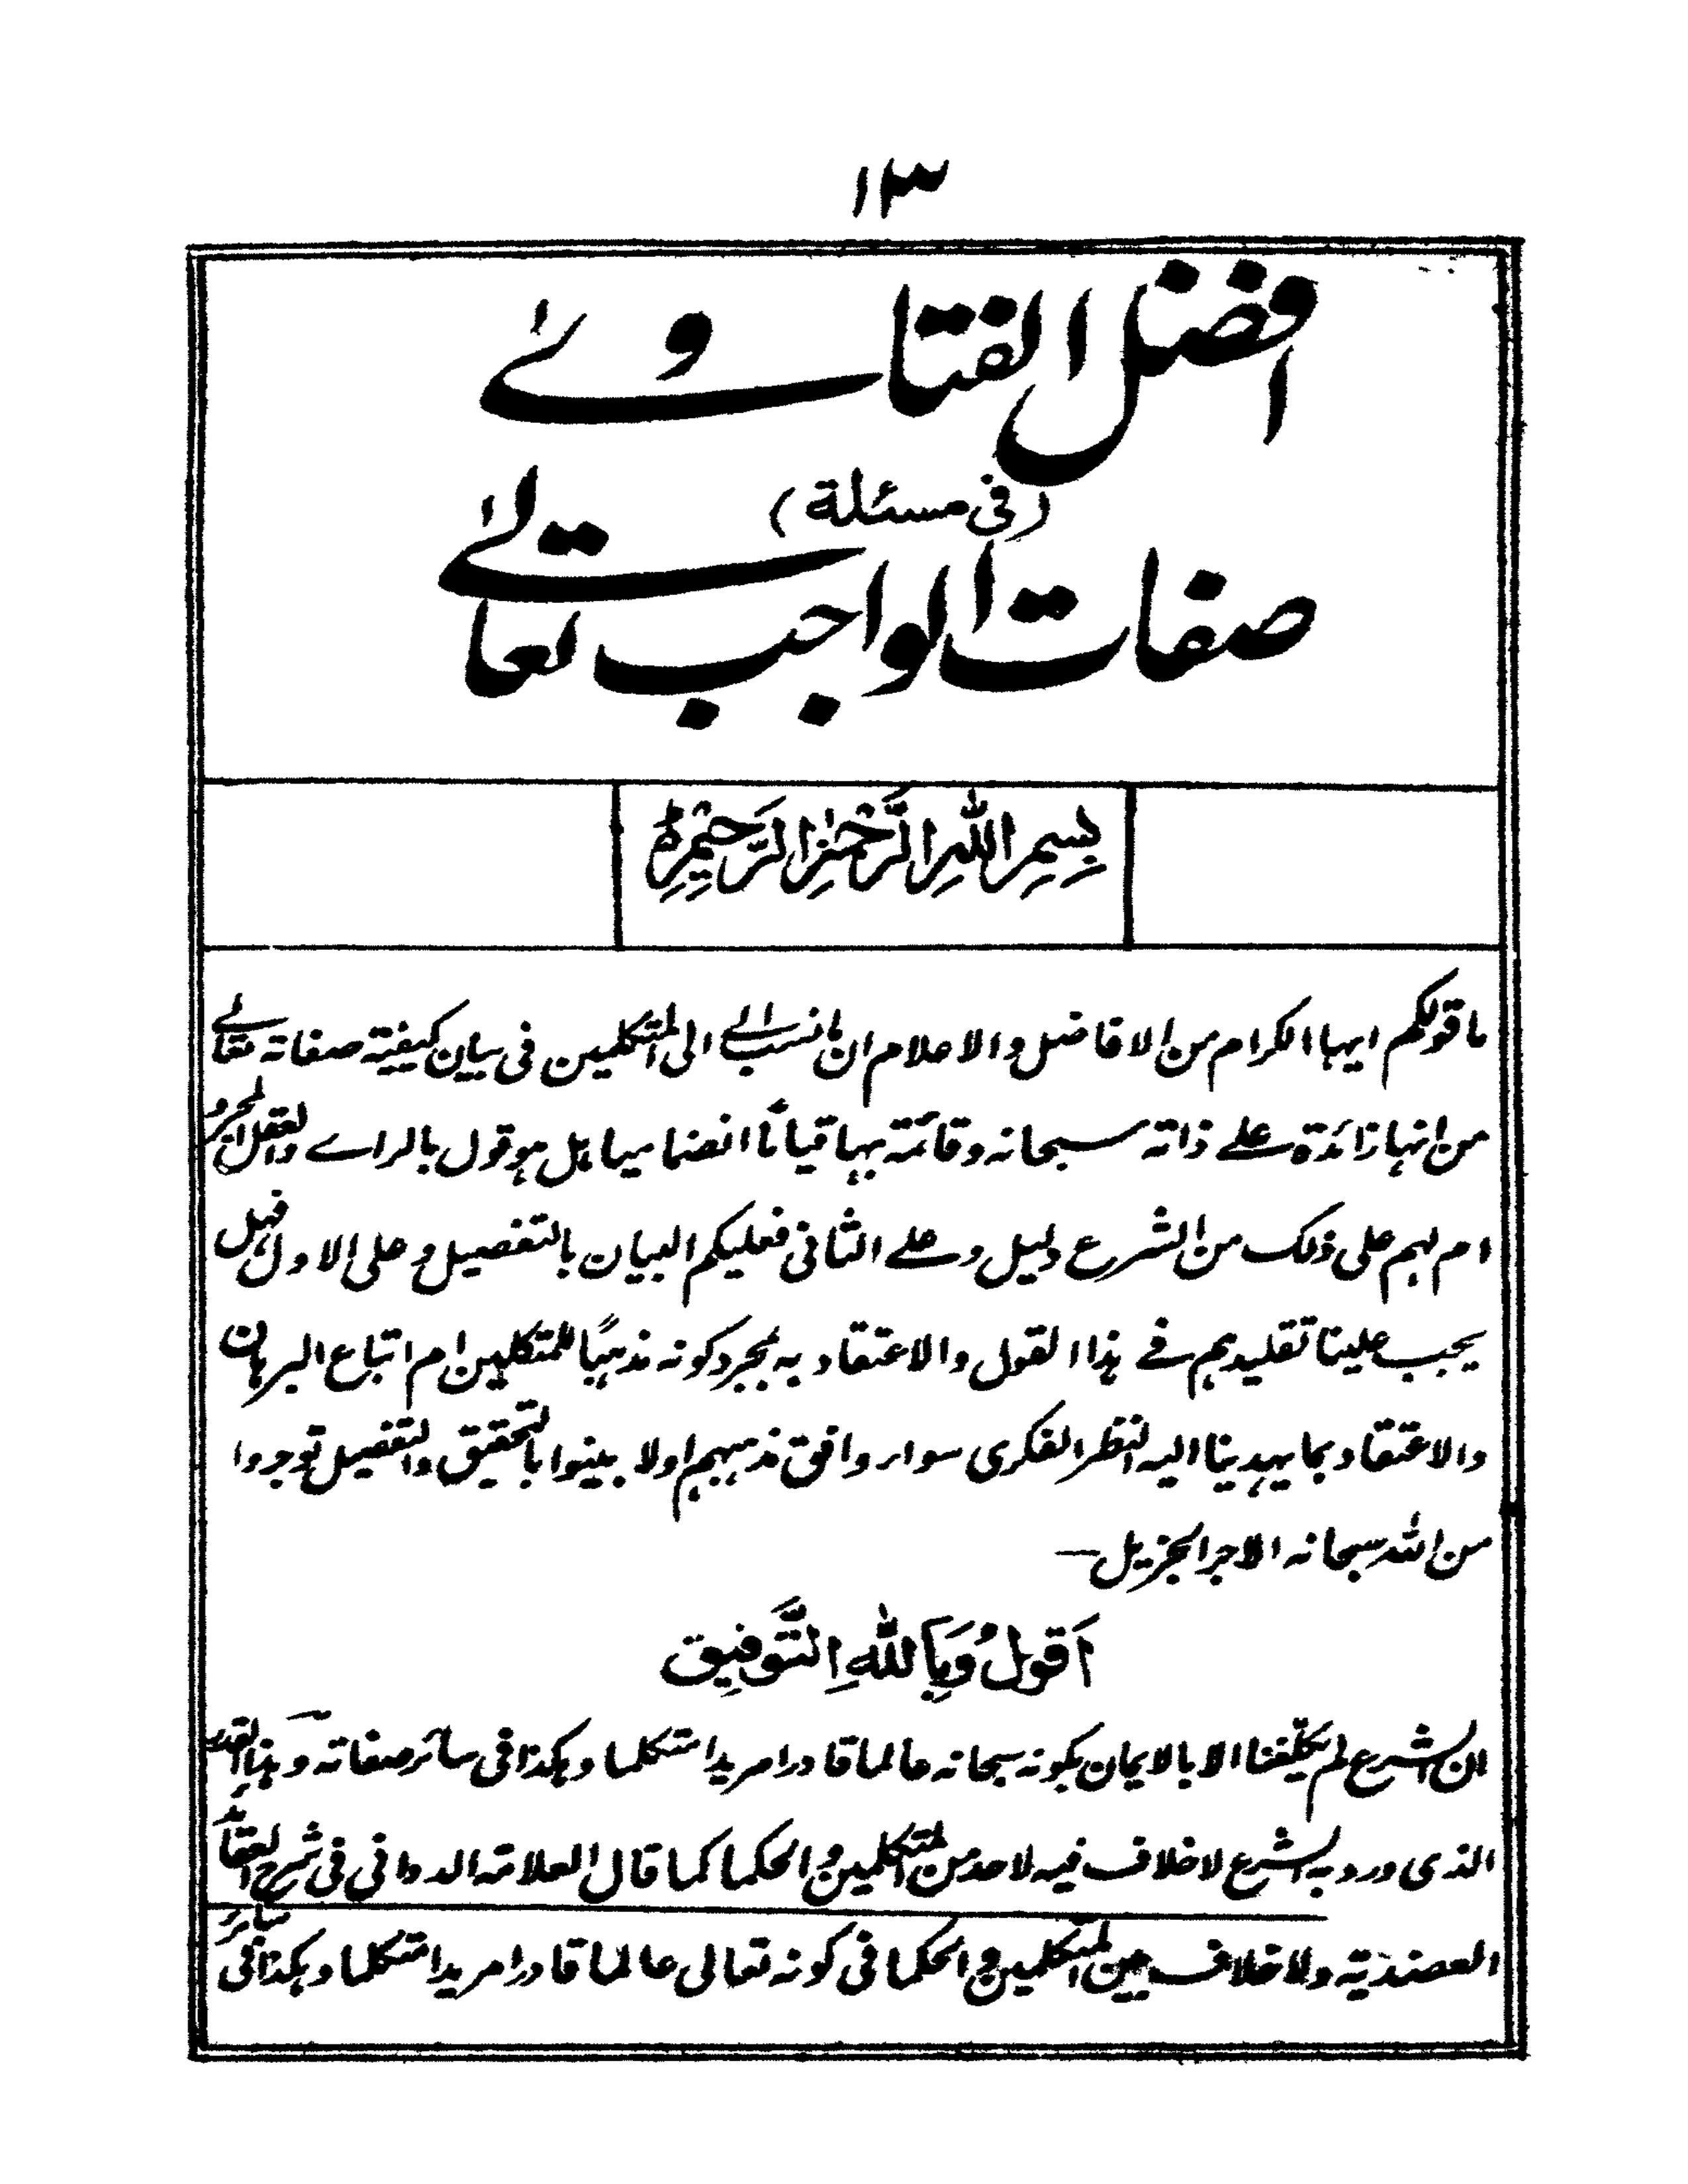 ١٣
افضل الفتاوٰے
(فی مسئلة)
صفات الواجب تعالٰے
بِسمِ اللهِ الرَّحمٰنِ الرَّحِيمِ
ما قولکم ایہا الکرام من الافاضل والاعلام ان ما نسب الی المتکلمین فی بیان کیفیة صفاته تعالٰے
من انہا زائدة علے ذاته سبحانه وقائمة بہا قیاماً انضمامیا ہل ہو قول بالراے والعقل المجرد
ام لہم علی ذلک من الشرع دلیل وعلے الثانی فعلیکم البیان بالتفصیل وعلی الاول فہل
یجب علینا تقلیدہم فے ہذا القول والاعتقاد به بمجرد کونه مذہبًا للمتکلمین ام اتباع البرہان
والاعتقاد بما یہدینا الیه النظر الفکری سواء وافق مذہبہم او لا بینوا بالتحقیق والتفصیل توجروا
من الله سبحانه الاجر الجزیل—
اَقولُ وَبِاللهِ التَّوفِیق
ان الشرع لم یکلّفنا الا بالایمان بکونه سبحانه عالما قادرا مریدا متکلما وہکذا فی سائر صفاته وہذا القدر
الذی ورد به الشرع لاخلاف فیه لاحد من المتکلمین والحکما کما قال العلامة الدوانی فی شرح العقائد
العضدیة ولاخلاف بین المتکلمین والحکما فی کونه تعالی عالما قادرا مریدا متکلما وہکذا فی سائر